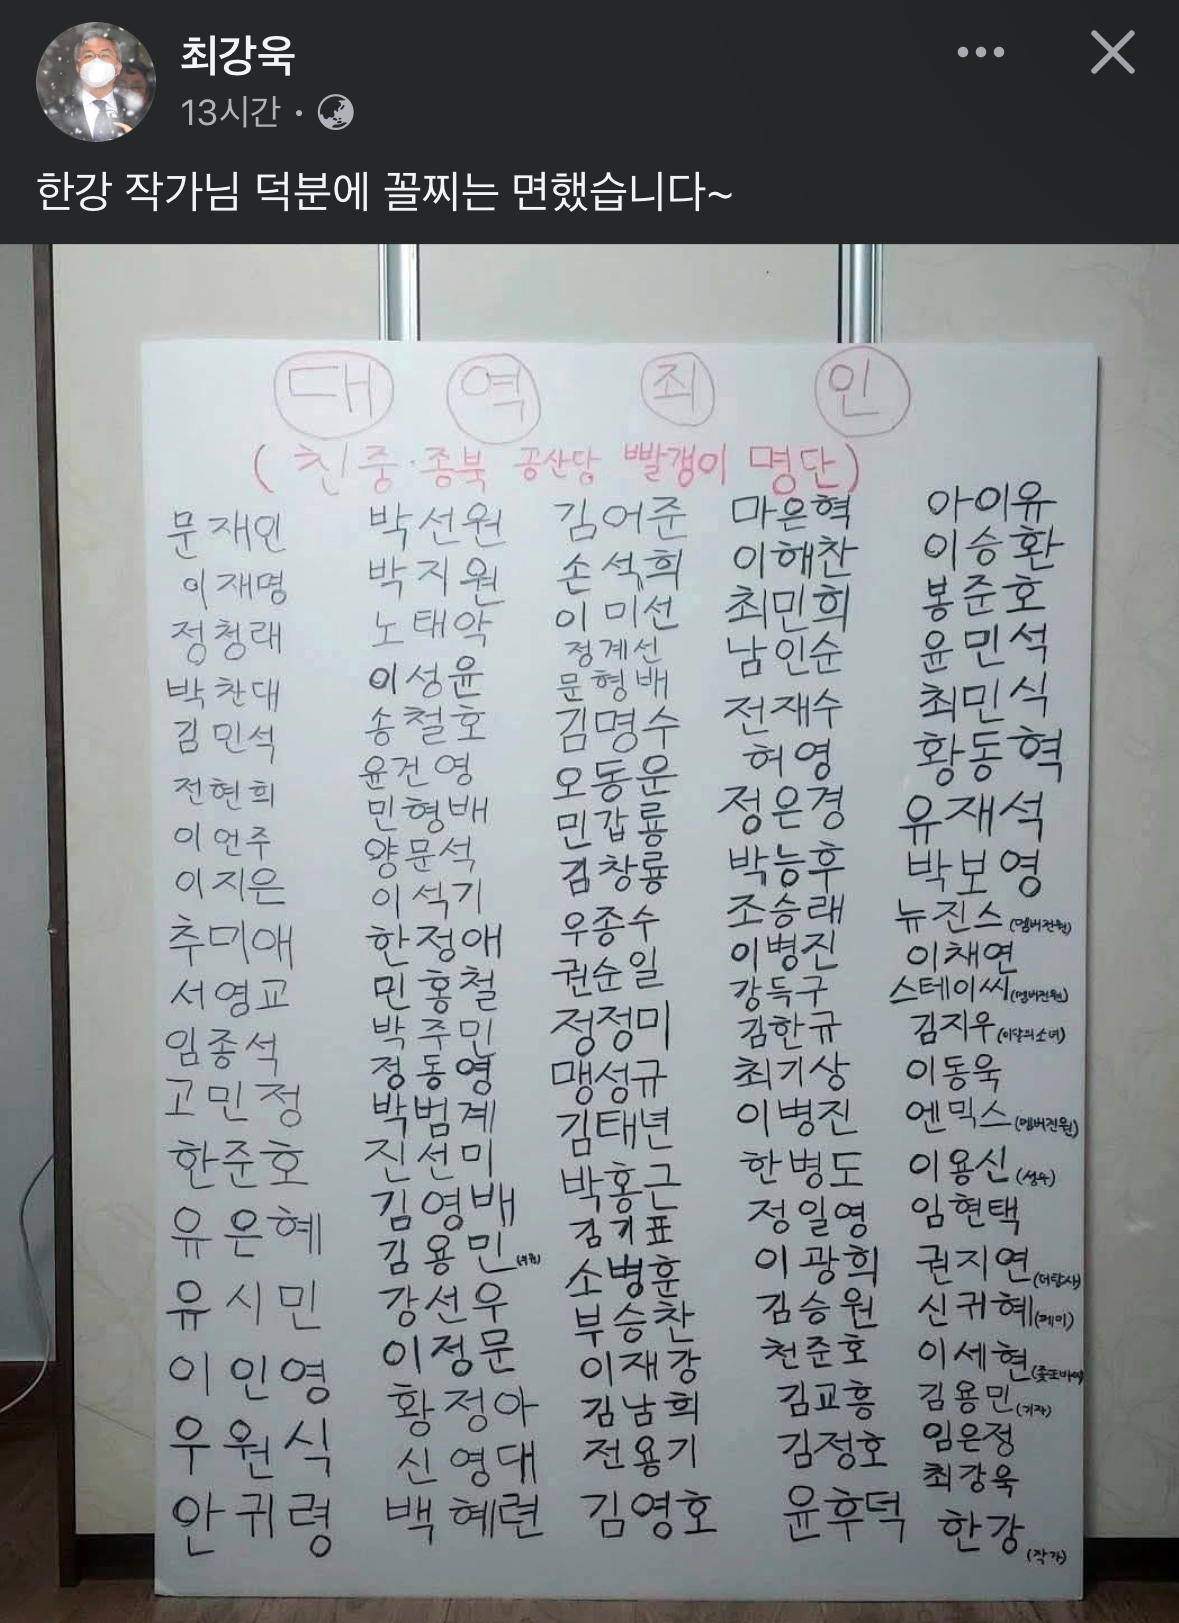 최강욱
13시간 ·
한강 작가님 덕분에 꼴찌는 면했습니다~
대 역 죄 인
( 친중·종북 공산당 빨갱이 명단)
문재인
이재명
정청래
박찬대
김민석
전현희
이언주
이지은
추미애
서영교
임종석
고민정
한준호
유은혜
유시민
이인영
우원식
안귀령
박선원
박지원
노태악
이성윤
송철호
윤건영
민형배
양문석
이석기
한정애
민홍철
박주민
정동영
박범계
진선미
김영배
김용민
강선우
이정문
황정아
신영대
백혜련
김어준
손석희
이미선
정계선
문형배
김명수
오동운
민갑룡
김창룡
우종수
권순일
정정미
맹성규
김태년
박홍근
김기표
소병훈
부승찬
이재강
김남희
전용기
김영호
마은혁
이해찬
최민희
남인순
전재수
허영
정은경
박능후
조승래
이병진
강득구
김한규
최기상
이병진
한병도
정일영
이광희
김승원
천준호
김교흥
김정호
윤후덕
아이유
이승환
봉준호
윤민석
최민식
황동혁
유재석
박보영
뉴진스(멤버전원)
이채연
스테이씨(멤버전원)
김지우(이달의소녀)
이동욱
엔믹스(멤버전원)
이용신(성우)
임현택
권지연(더탐사)
신귀혜(케이)
이세현
김용민(기자)
임은정
최강욱
한강(작가)